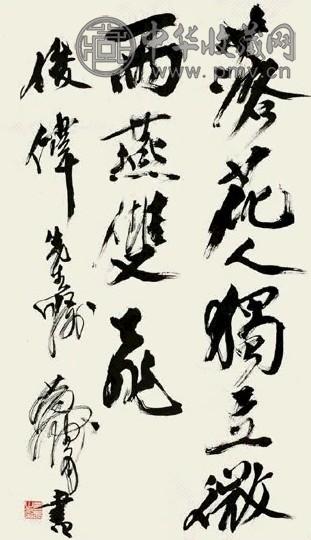 中华收藏网
落花人獨立微
雨燕雙飛
俊偉先生囑
書